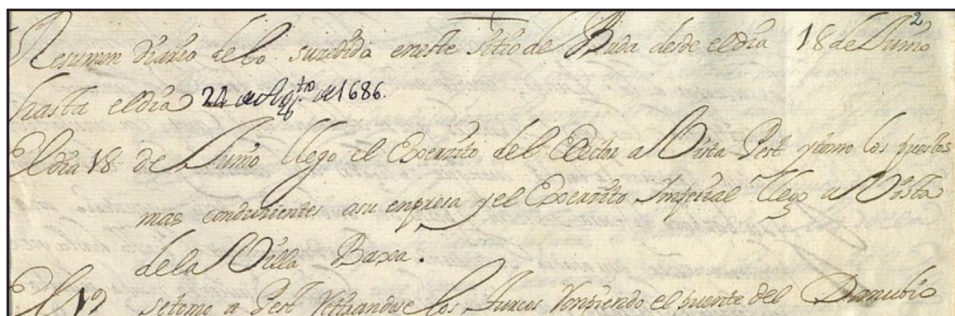 2
Resumen diario de lo sucedido en este sitio de Buda desde el dia 18 de Junio
hasta el dia 24 de Agto de 1686.
El dia 18 de Junio llego el Exercito del Elector a Vista Pest y tomo los puestos
mas conducientes a su empresa y el Exercito Imperial llego a Vista
de la Villa Baxa.
El 19 se tomo a Pest retirandose los Turcos rompiendo el puente del Danubio